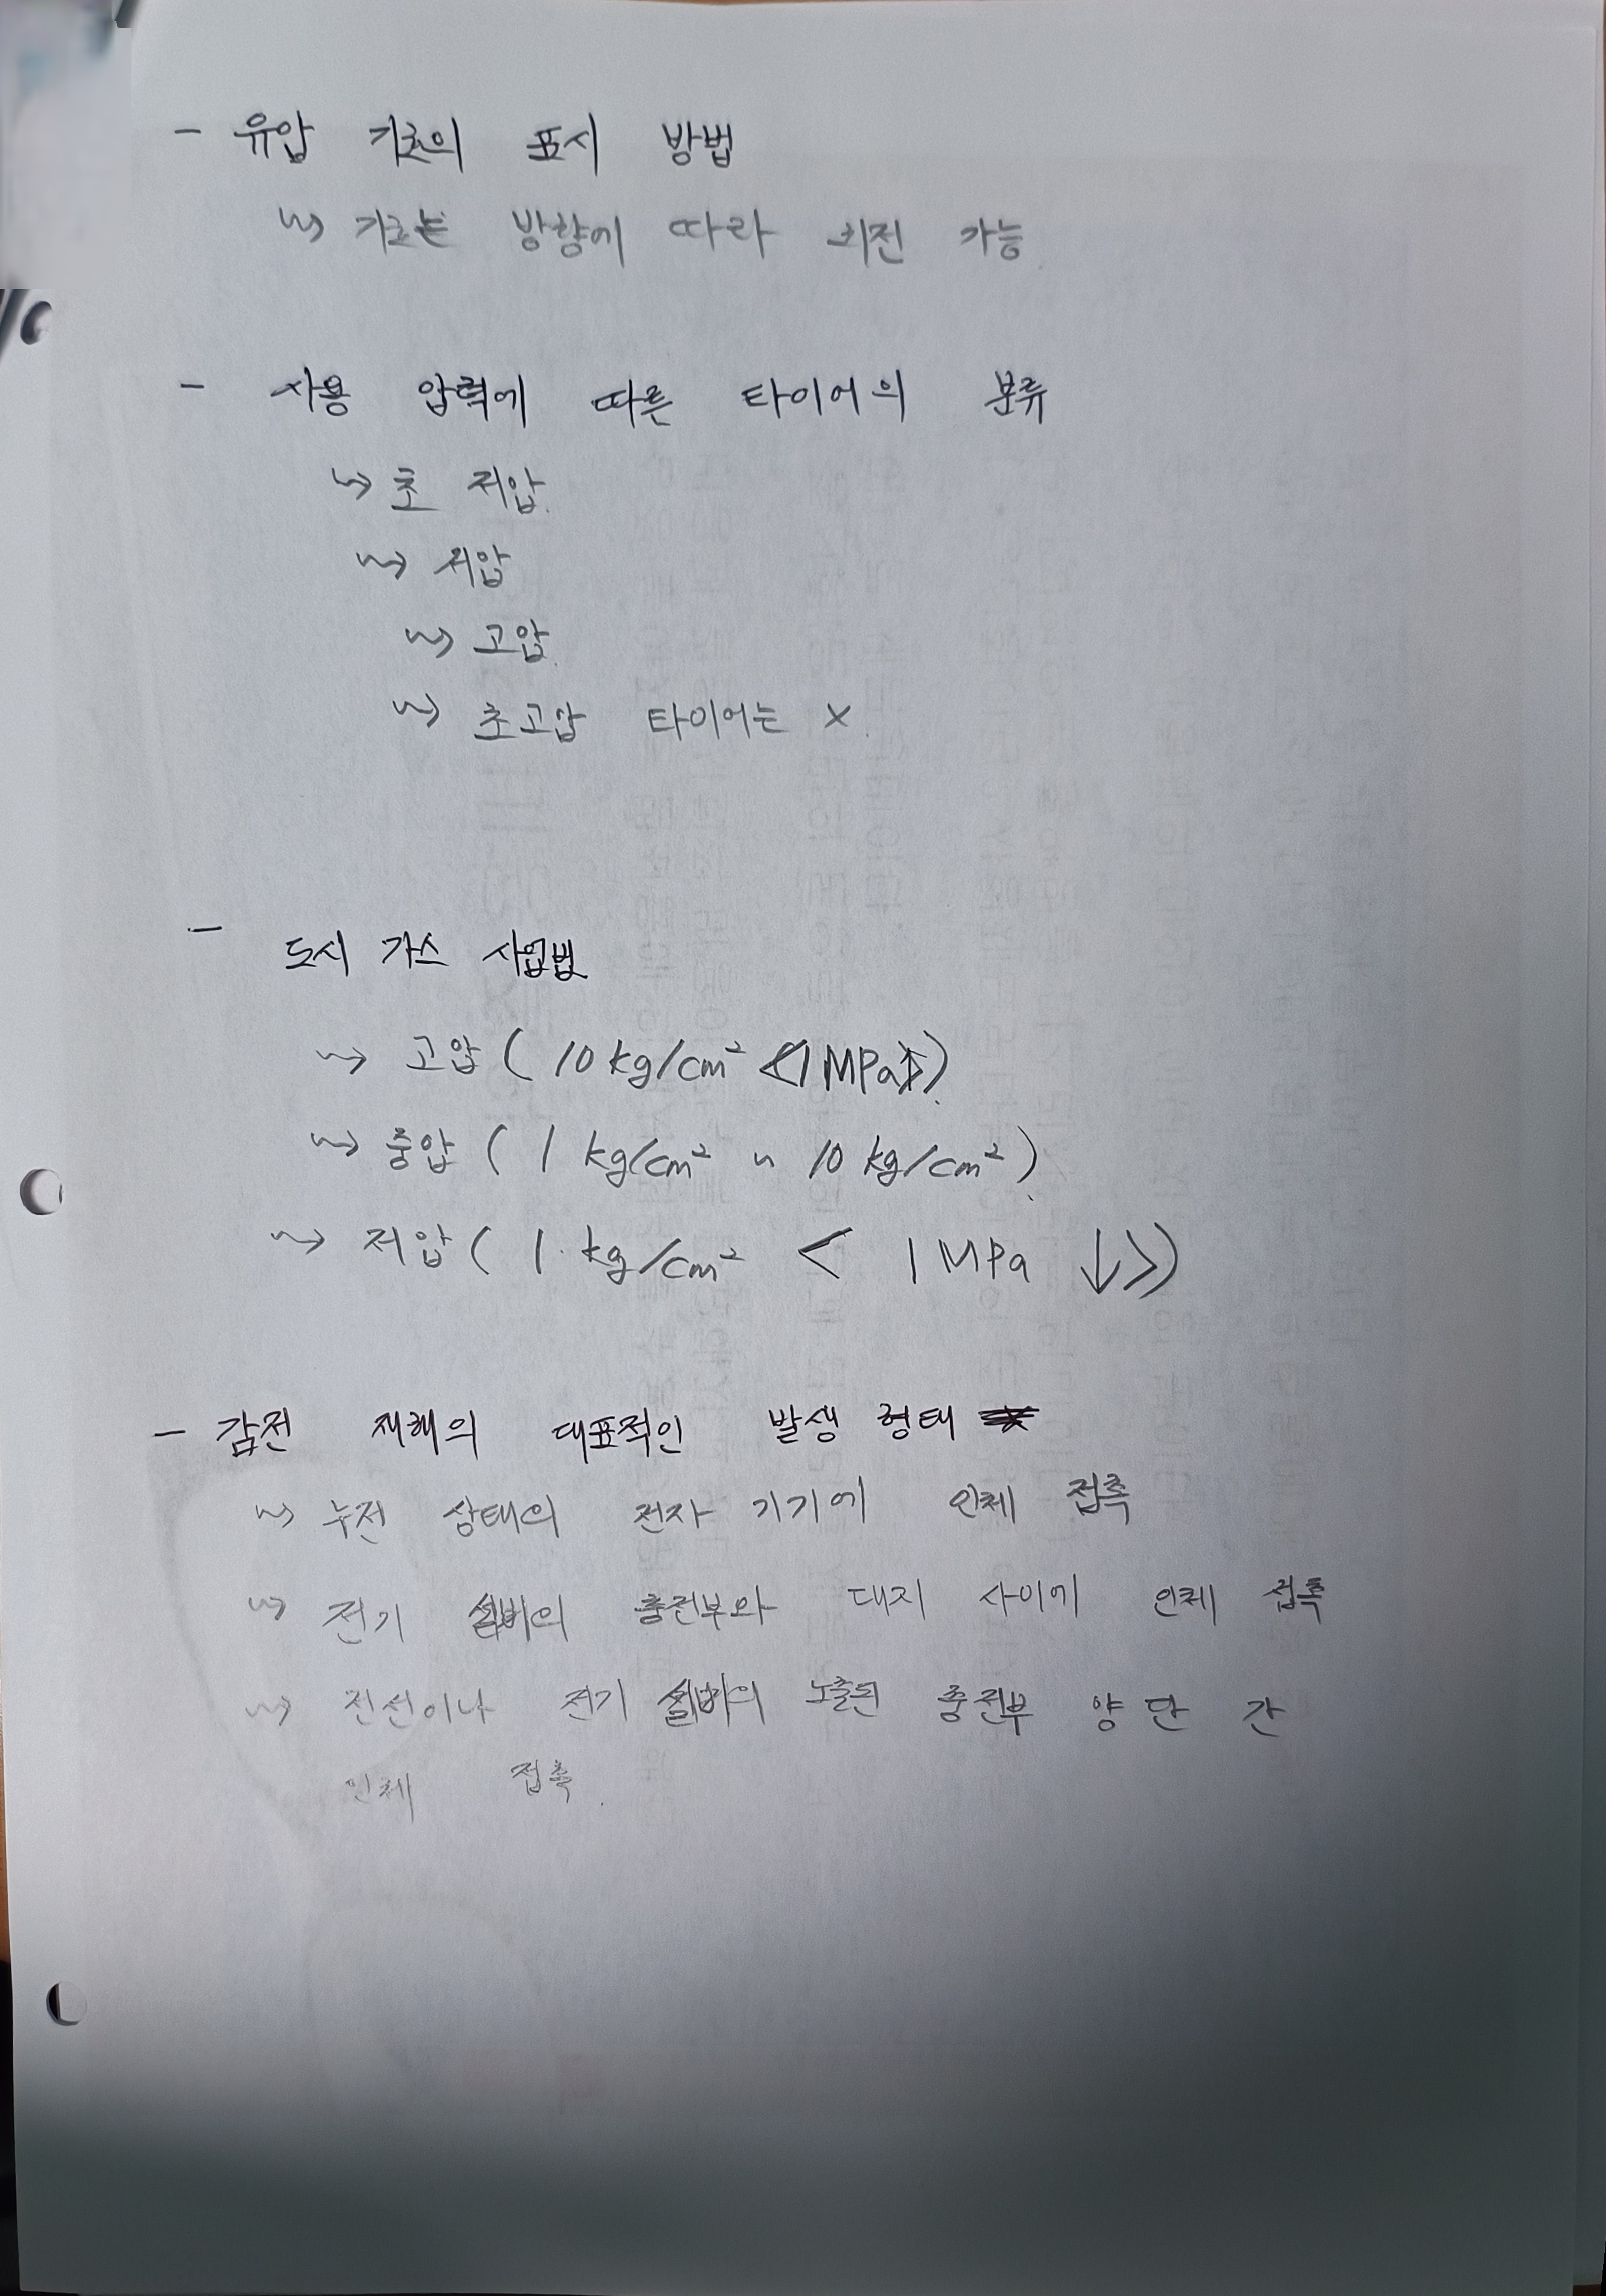 - 유압 기호의 표시 방법
↝ 기호는 방향에 따라 회전 가능
- 사용 압력에 따른 타이어의 분류
↝ 초 저압.
↝ 저압
↝ 고압.
↝ 초고압 타이어는 X.
- 도시 가스 사업법
↝ 고압 ( 10 kg/cm² <1 MPa↑>).
↝ 중압 ( 1 kg/cm² ~ 10 kg/cm² ).
↝ 저압 ( 1 kg/cm² < 1 MPa ↓>)
- 감전 재해의 대표적인 발생 형태
↝ 누전 상태의 전자 기기에 인체 접촉
↝ 전기 설비의 충전부와 대지 사이에 인체 접촉
↝ 전선이나 전기 설비의 노출된 충전부 양 단 간
인체 접촉.